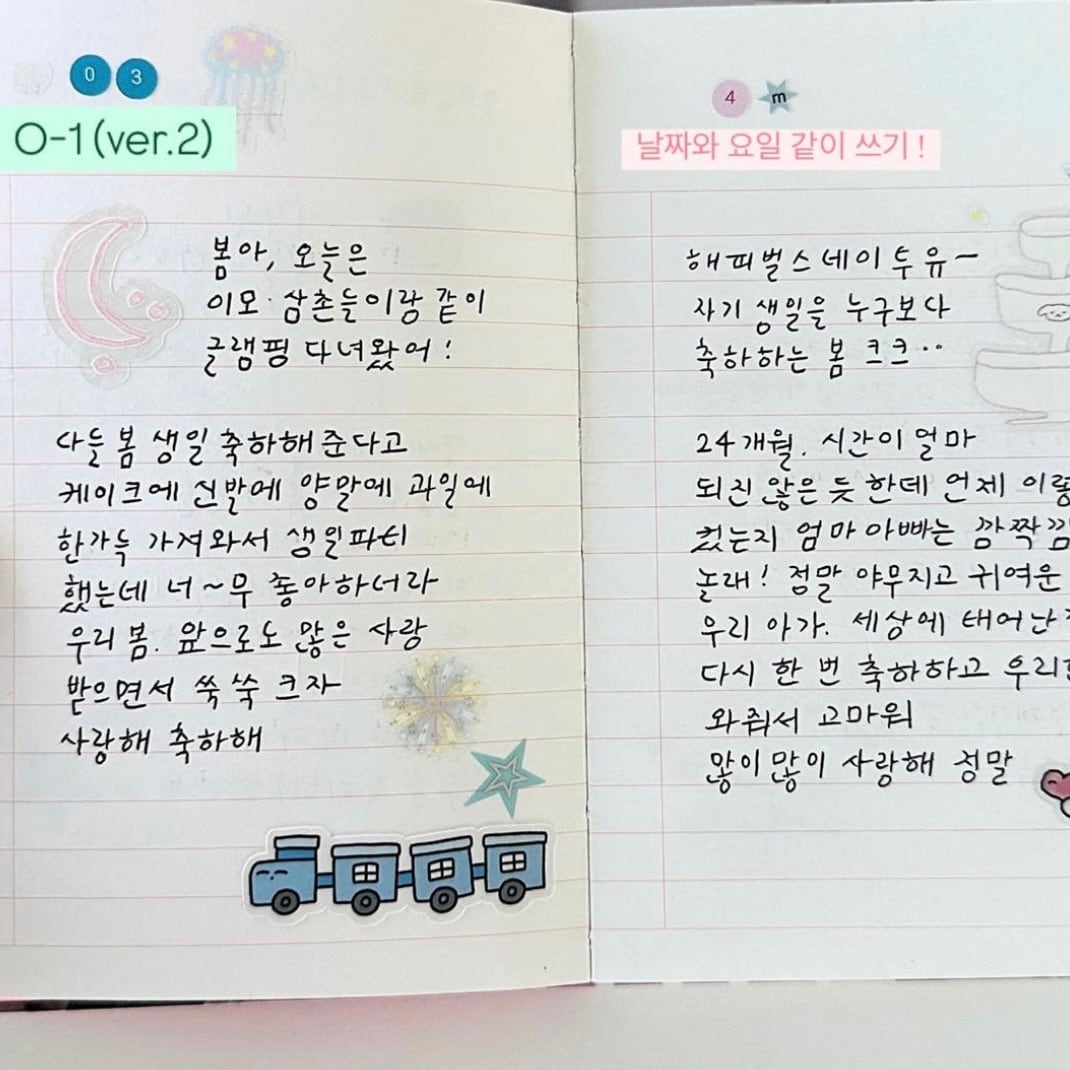 0 3
O-1(ver.2)
봄아, 오늘은
이모·삼촌들이랑 같이
글램핑 다녀왔어!
다들 봄 생일 축하해 준다고
케이크에 신발에 양말에 과일에
한가득 가져와서 생일파티
했는데 너~무 좋아하더라
우리 봄. 앞으로도 많은 사랑
받으면서 쑥쑥 크자
사랑해 축하해
4 m
날짜와 요일 같이 쓰기 !
해피벌스데이 투 유~
자기 생일을 누구보다
축하하는 봄 크크··
24개월. 시간이 얼마
되진 않은 듯 한데 언제 이렇
컸는지 엄마 아빠는 깜짝깜
놀래! 정말 야무지고 귀여운
우리 아가. 세상에 태어난
다시 한 번 축하하고 우리
와줘서 고마워
많이많이 사랑해 정말